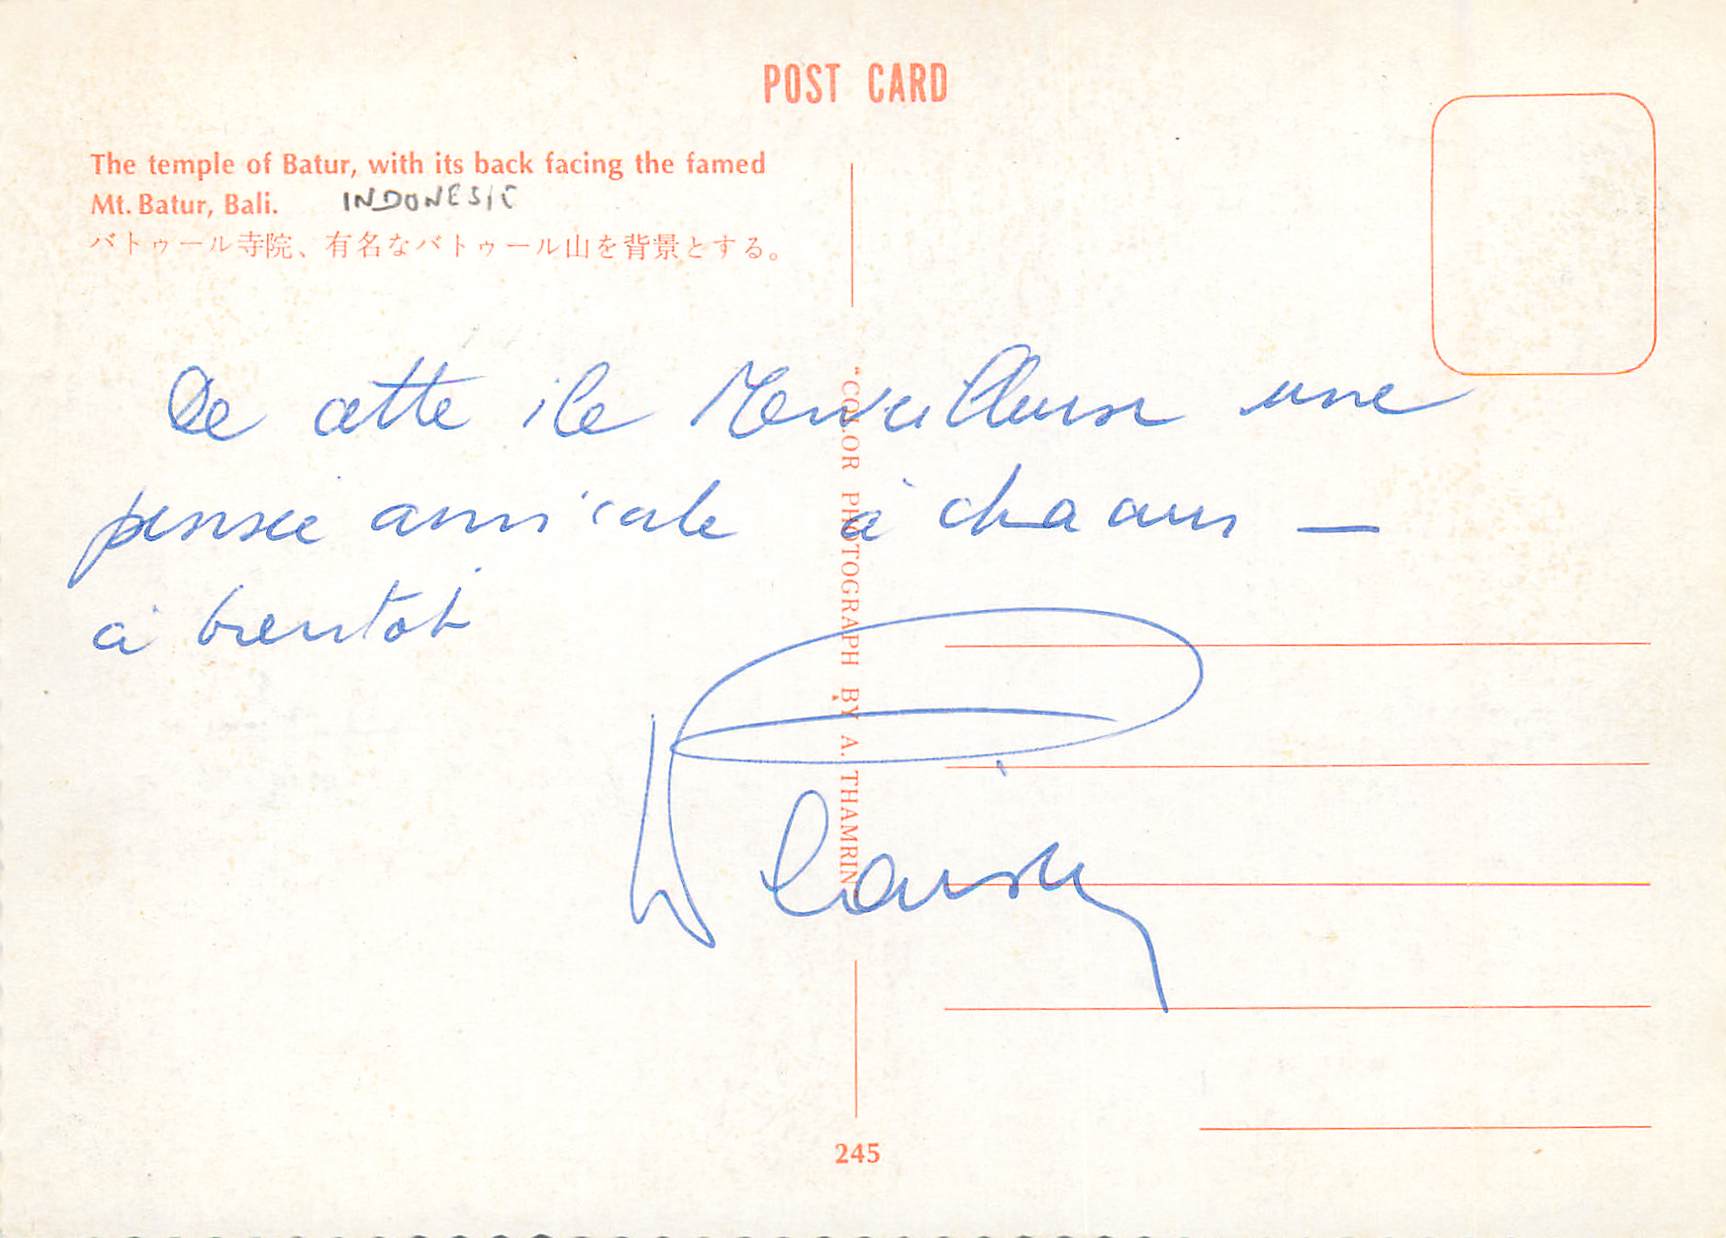 POST CARD
The temple of Batur, with its back facing the famed
Mt. Batur, Bali. INDONESIE
バトゥール寺院、有名なバトゥール山を背景とする。
De cette ile Merveilleuse une
pensée amicale à chacun —
à bientôt
"COLOR PHOTOGRAPH BY A. THAMRIN"
245